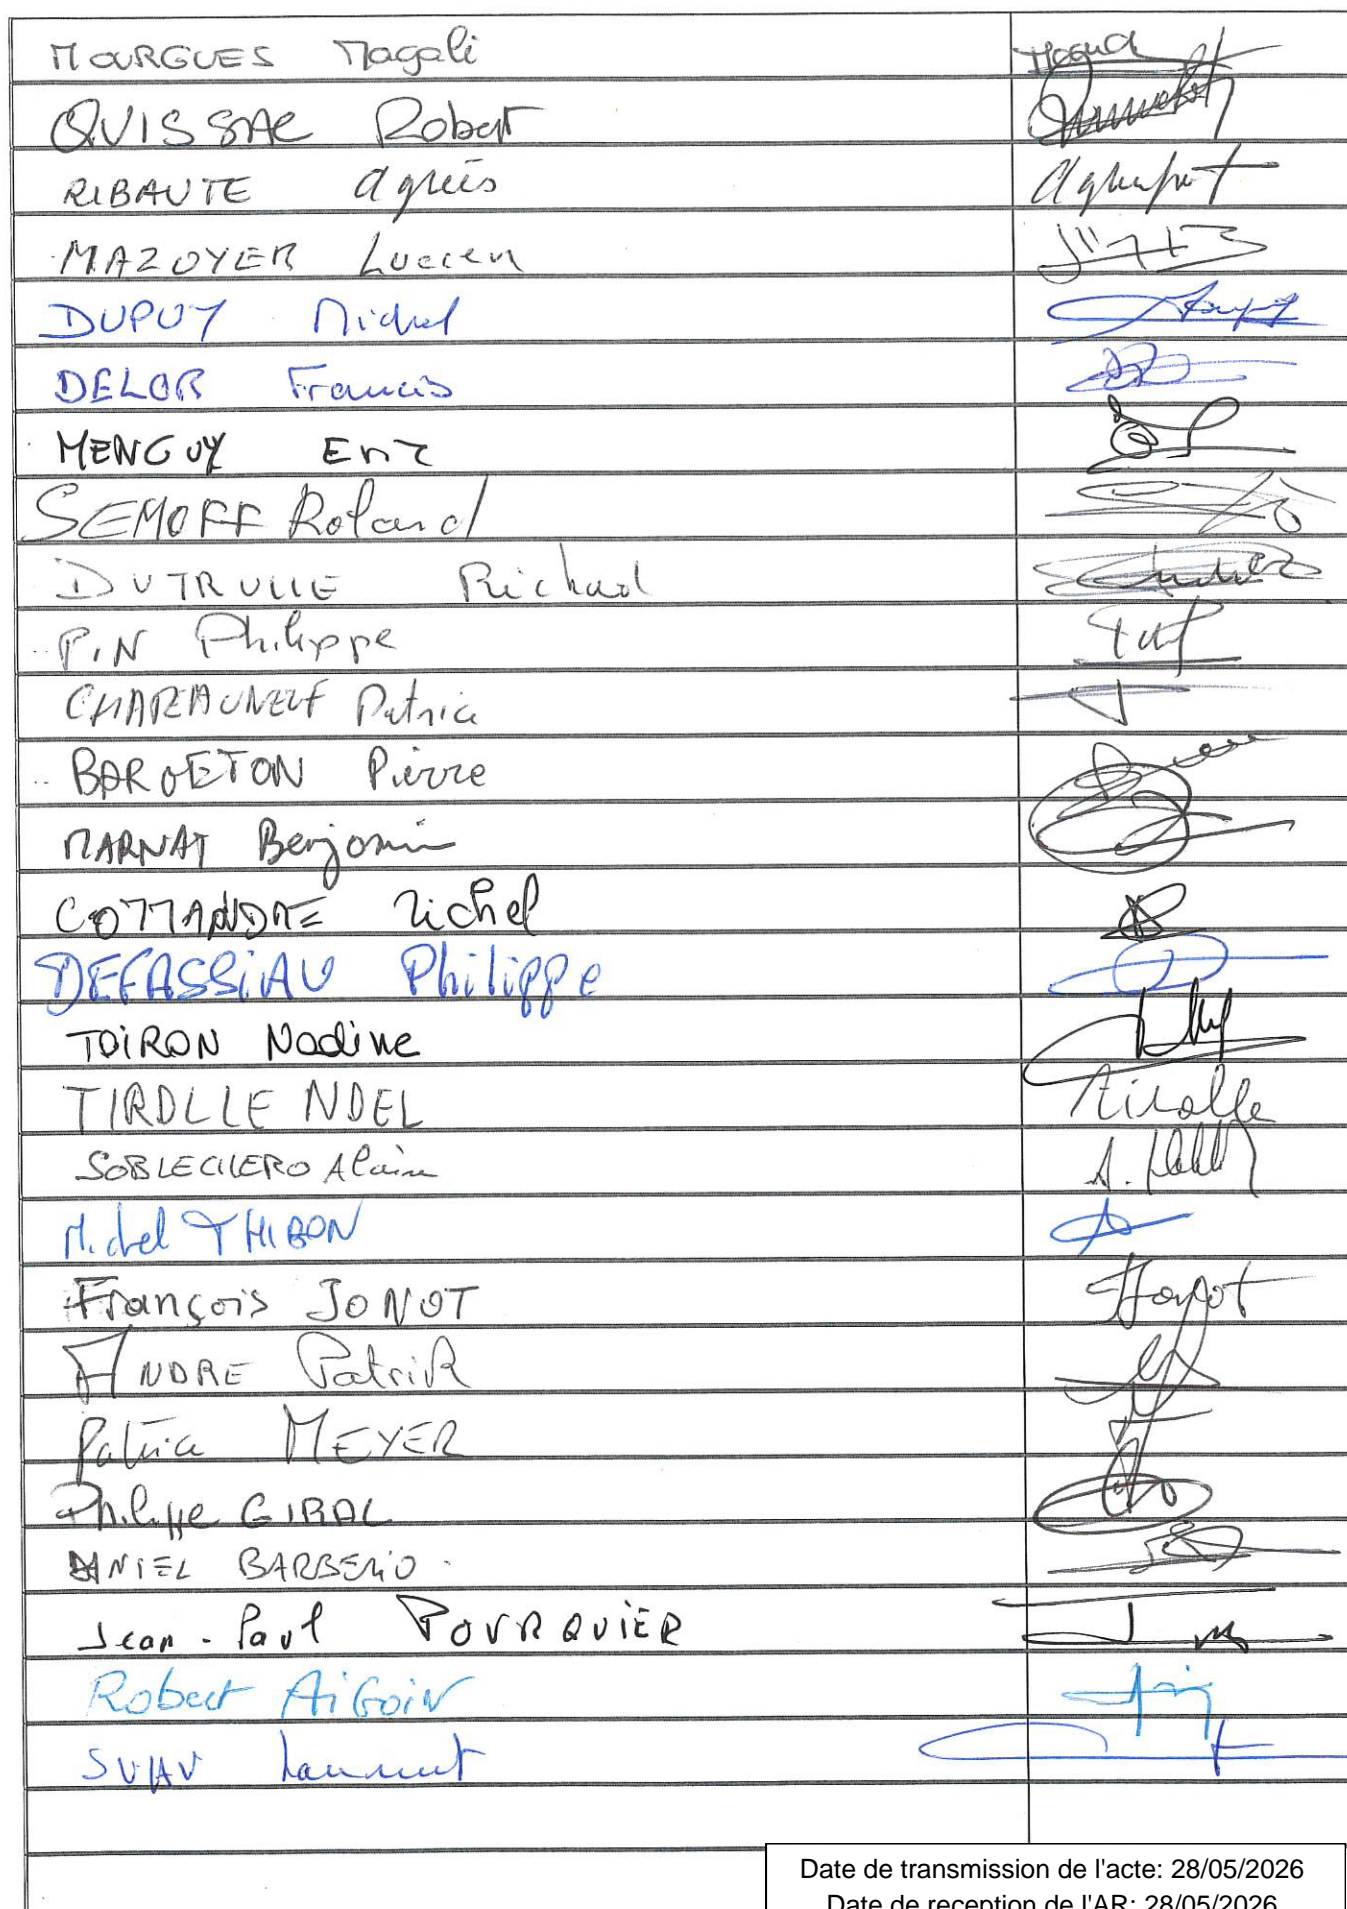 MOURGUES Magali
QUISSAC Robert
RIBAUTE Agnès
MAZOYER Lucien
DUPUY Michel
DELOR Francis
MENGUY Eric
SEMOFF Roland
DUTRULLE Richard
PIN Philippe
CHATEAUNEUF Patrice
BARGETON Pierre
MARNAT Benjamin
COMMANDRE Michel
DEFASSIAU Philippe
TOIRON Nadine
TIROLLE NOEL Tirolle
Alain
Michel THIBON
François JONOT
ANDRE Patrick
Patrice MEYER
Philippe GIRAL
DANIEL BARBERIO
Jean-Paul POURQUIER
Robert AIGOIN
SUAU Laurent
Date de transmission de l'acte: 28/05/2026
Date de reception de l'AR: 28/05/2026